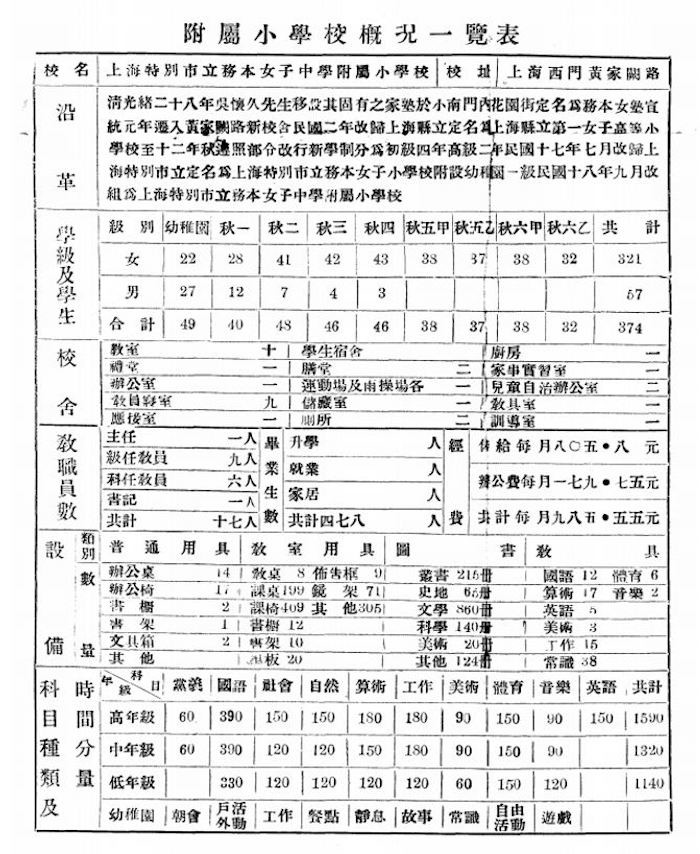 附屬小學校概況一覽表
校名 上海特別市立務本女子中學附屬小學校 校址 上海西門黃家闕路
沿革
清光緒二十八年吳懷久先生移設其固有之家塾於小南門內花園街定名爲務本女塾宣
統元年遷入黃家闕路新校舍民國二年改歸上海縣立定名爲上海縣立第一女子高等小
學校至十二年秋遵照部令改行新學制分爲初級四年高級二年民國十七年七月改歸上
海特別市立定名爲上海特別市立務本女子小學校附設幼稚園一級民國十八年九月改
組爲上海特別市立務本女子中學附屬小學校
學級及學生
級別 幼稚園 秋一 秋二 秋三 秋四 秋五甲 秋五乙 秋六甲 秋六乙 共計
女 22 28 41 42 43 38 37 38 32 321
男 27 12 7 4 3 57
合計 49 40 48 46 46 38 37 38 32 374
校舍
教室 十 學生宿舍 廚房 一
禮堂 一 膳堂 二 家事實習室 一
辦公室 一 運動場及雨操場各 一 兒童自治辦公室 二
教員寢室 九 儲藏室 一 教具室 一
應接室 一 廁所 二 訓導室 一
教職員數
主任 一人
級任教員 九人
科任教員 六人
書記 一人
共計 十七人
畢業生數
升學 人
就業 人
家居 人
共計四七八 人
經費
俸給每月八〇五•八 元
辦公費每月一七九•七五元
共計每月九八五•五五元
設備
類別 普通用具 教室用具 圖書 教具
數量
辦公桌 14 教桌 8 佈告框 9 叢書 215冊 國語 12 體育 6
辦公椅 17 課桌199 鏡架 71 史地 65冊 算術 17 音樂 2
書櫥 2 課椅409 其他305 文學 860冊 英語 5
書架 1 書櫥 12 科學 140冊 美術 3
文具箱 2 書架 10 美術 20冊 工作 15
其他 黑板 20 其他 124冊 常識 38
科目種類及時間分量
年級 科目 黨義 國語 社會 自然 算術 工作 美術 體育 音樂 英語 共計
高年級 60 390 150 150 180 180 90 150 90 150 1590
中年級 60 390 120 120 150 180 90 150 90 1320
低年級 330 120 120 120 120 60 150 120 1140
幼稚園 朝會 戶外活動 工作 餐點 靜息 故事 常識 自由活動 遊戲